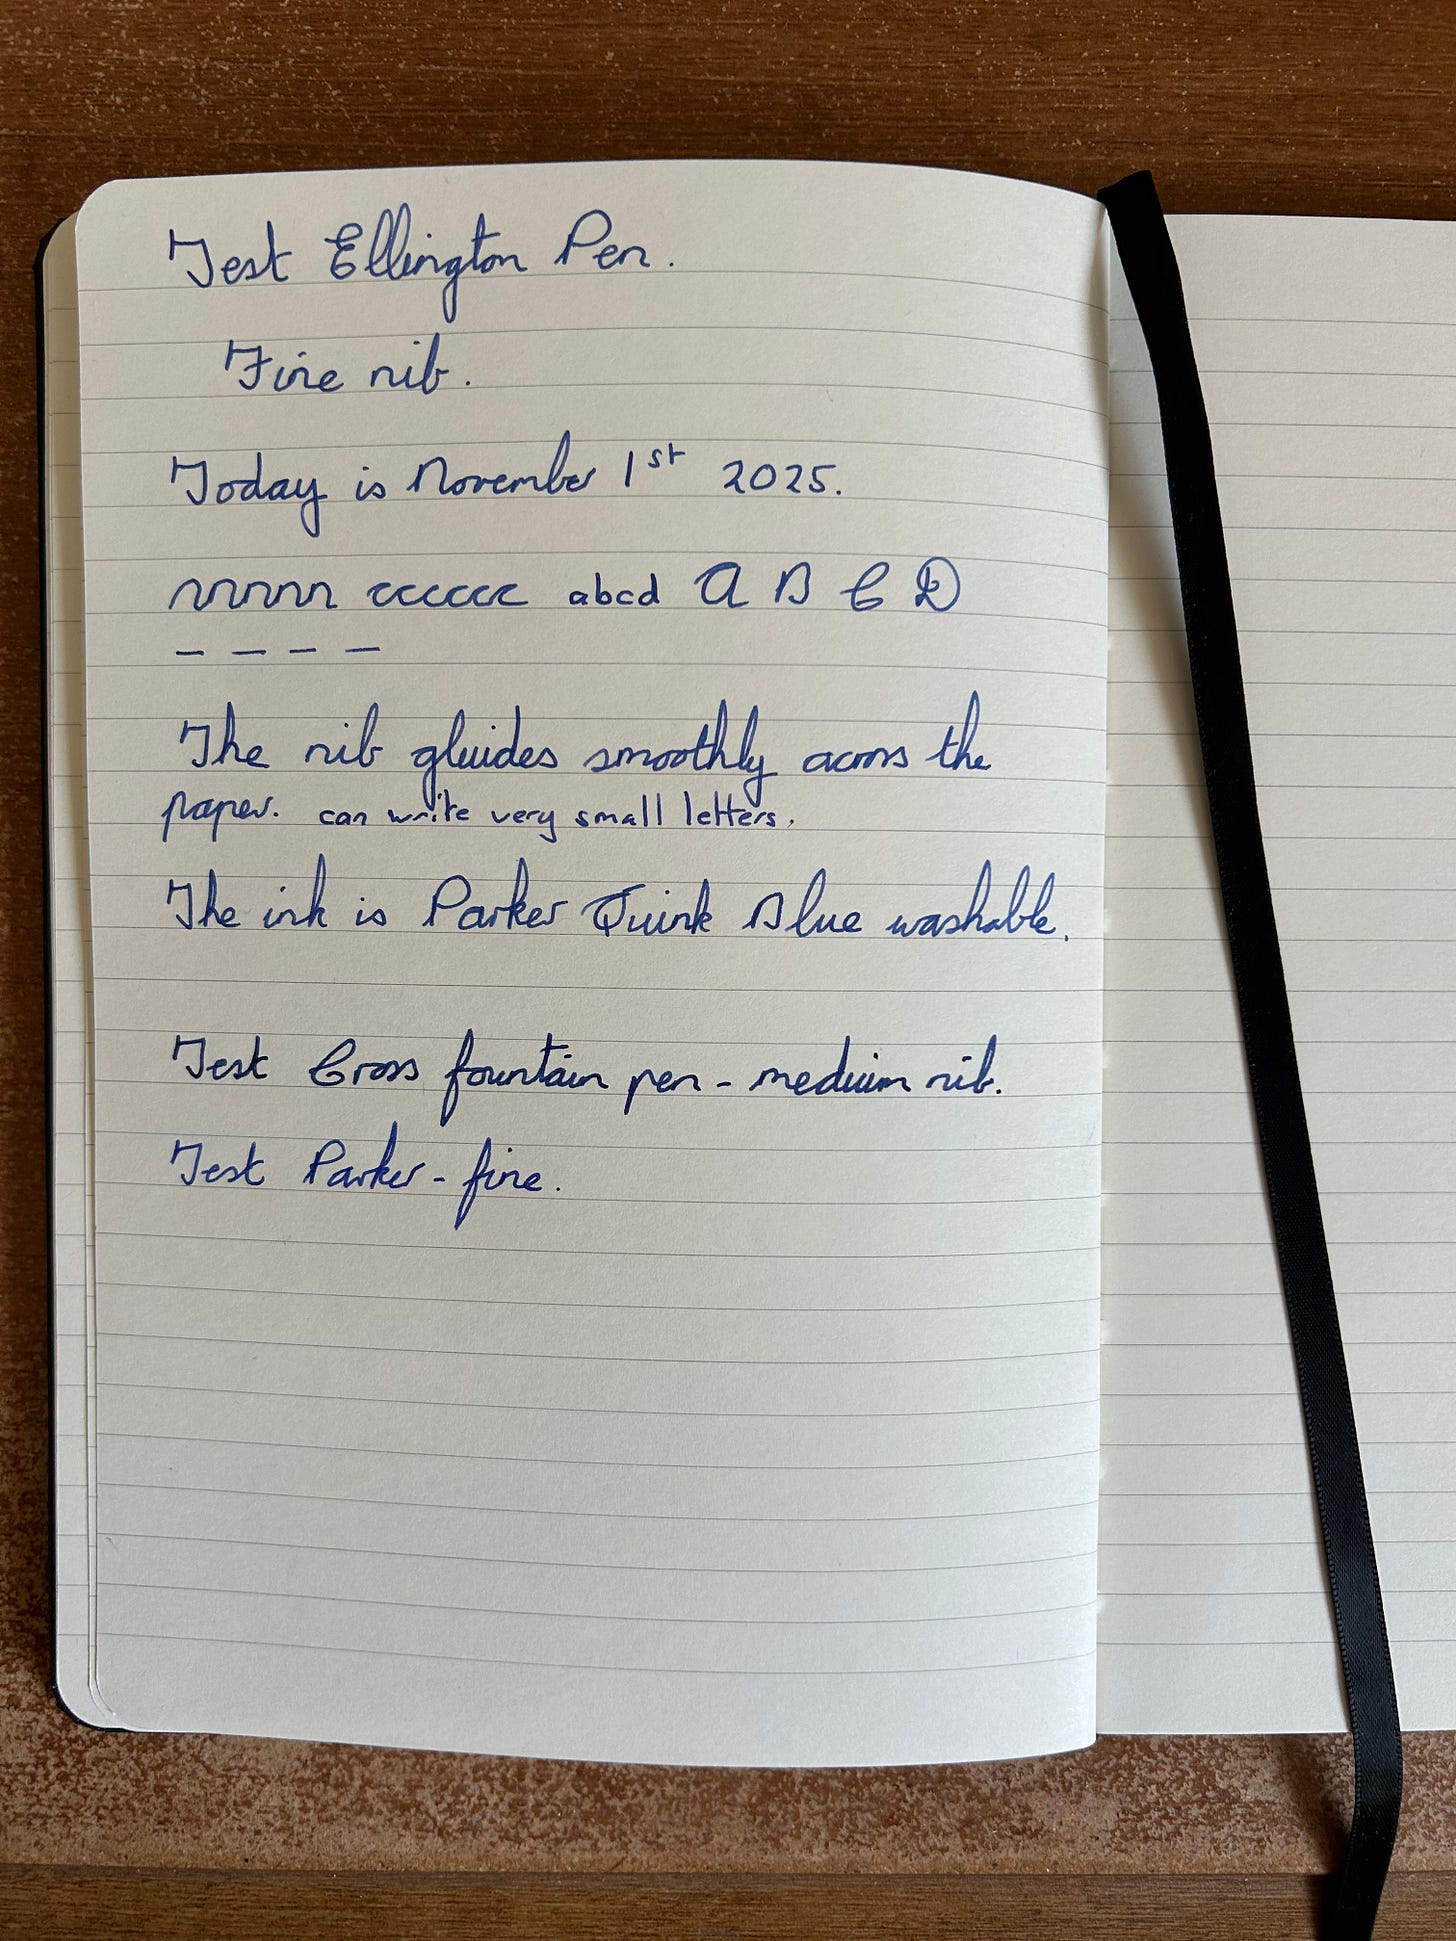 Test Ellington Pen.
Fine nib.
Today is November 1st 2025.
nnnnn cccccc abcd A B C D
– – – –
The nib gluides smoothly across the
paper. can write very small letters.
The ink is Parker Quink Blue washable.
Test Cross fountain pen - medium nib.
Test Parker - fine.